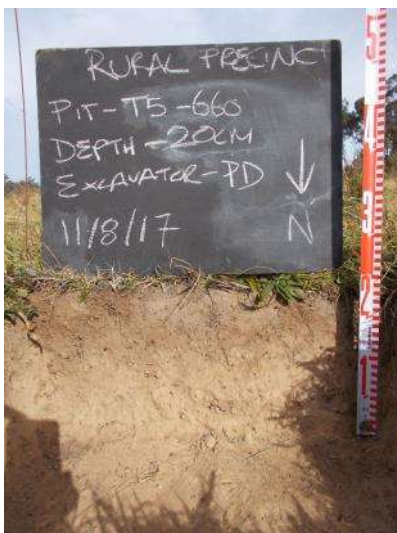 RURAL PRECINCT
PIT-T5-660
DEPTH-20CM
EXCAVATOR-PD
11/8/17
N
5
4
3
2
1